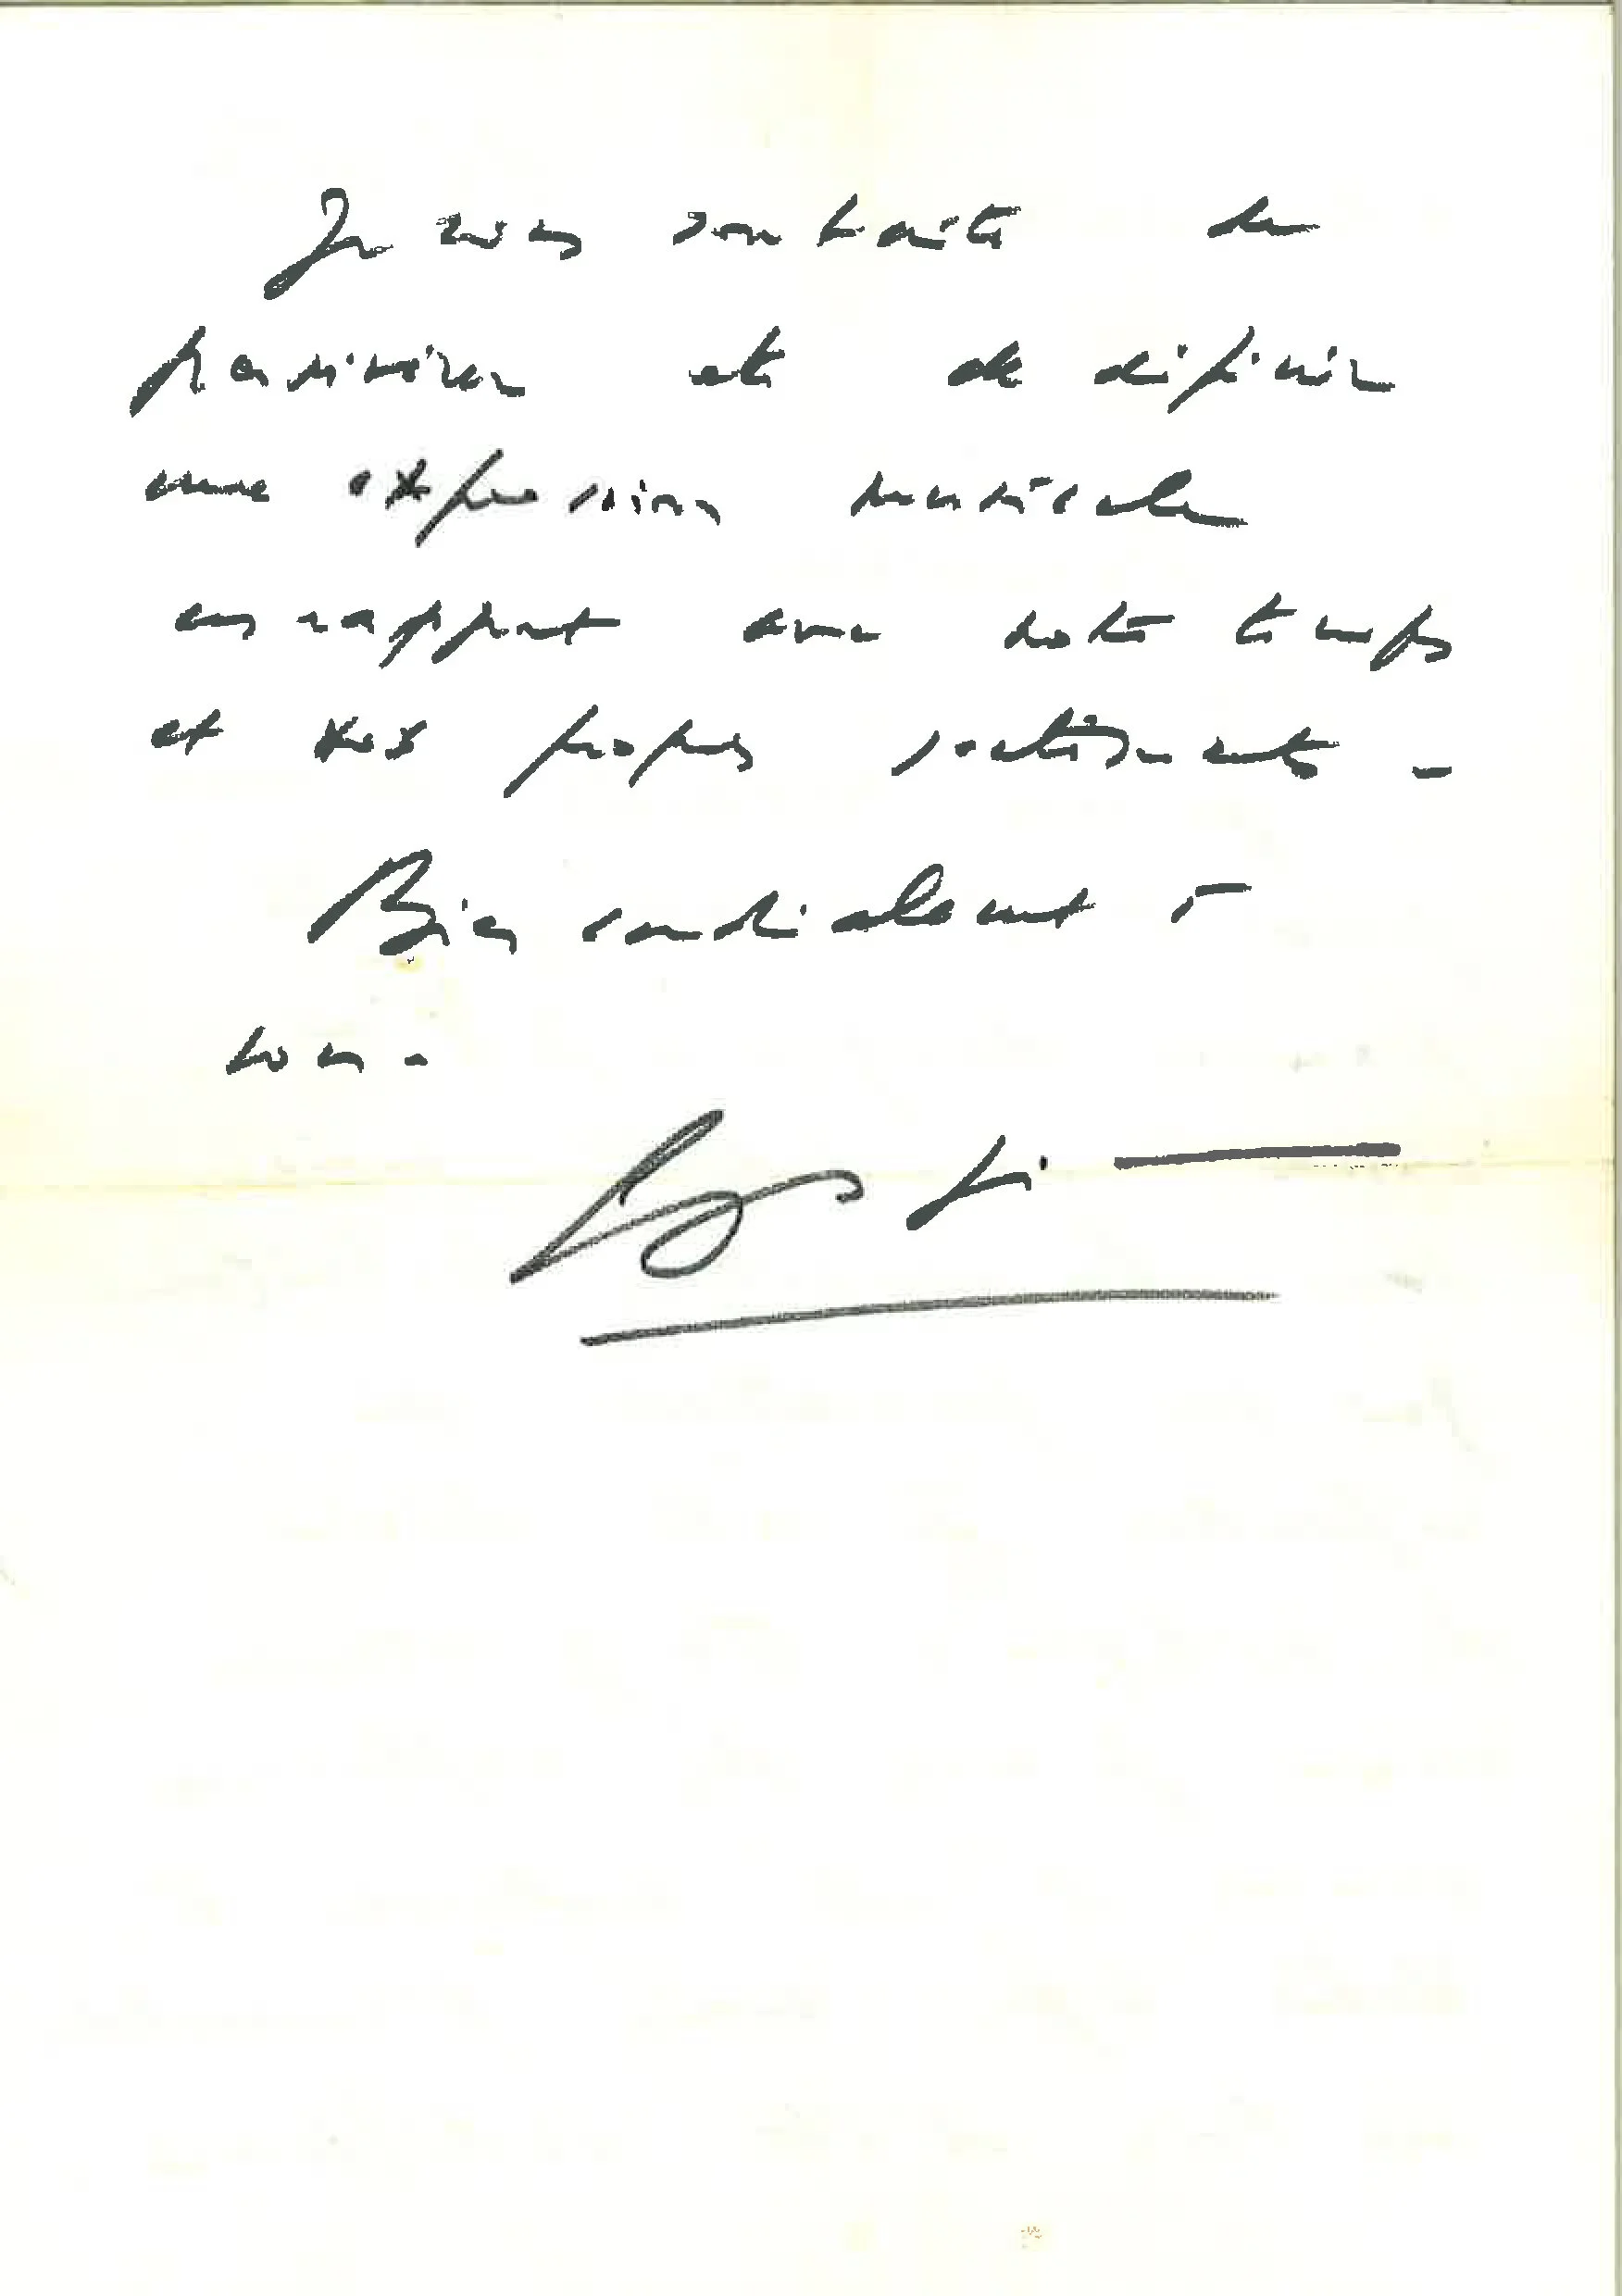 Je vous souhaite de
persévérer et de définir
une expression musicale
en rapport avec notre temps
et vos propres sentiments -
Bien cordialement à
vous -